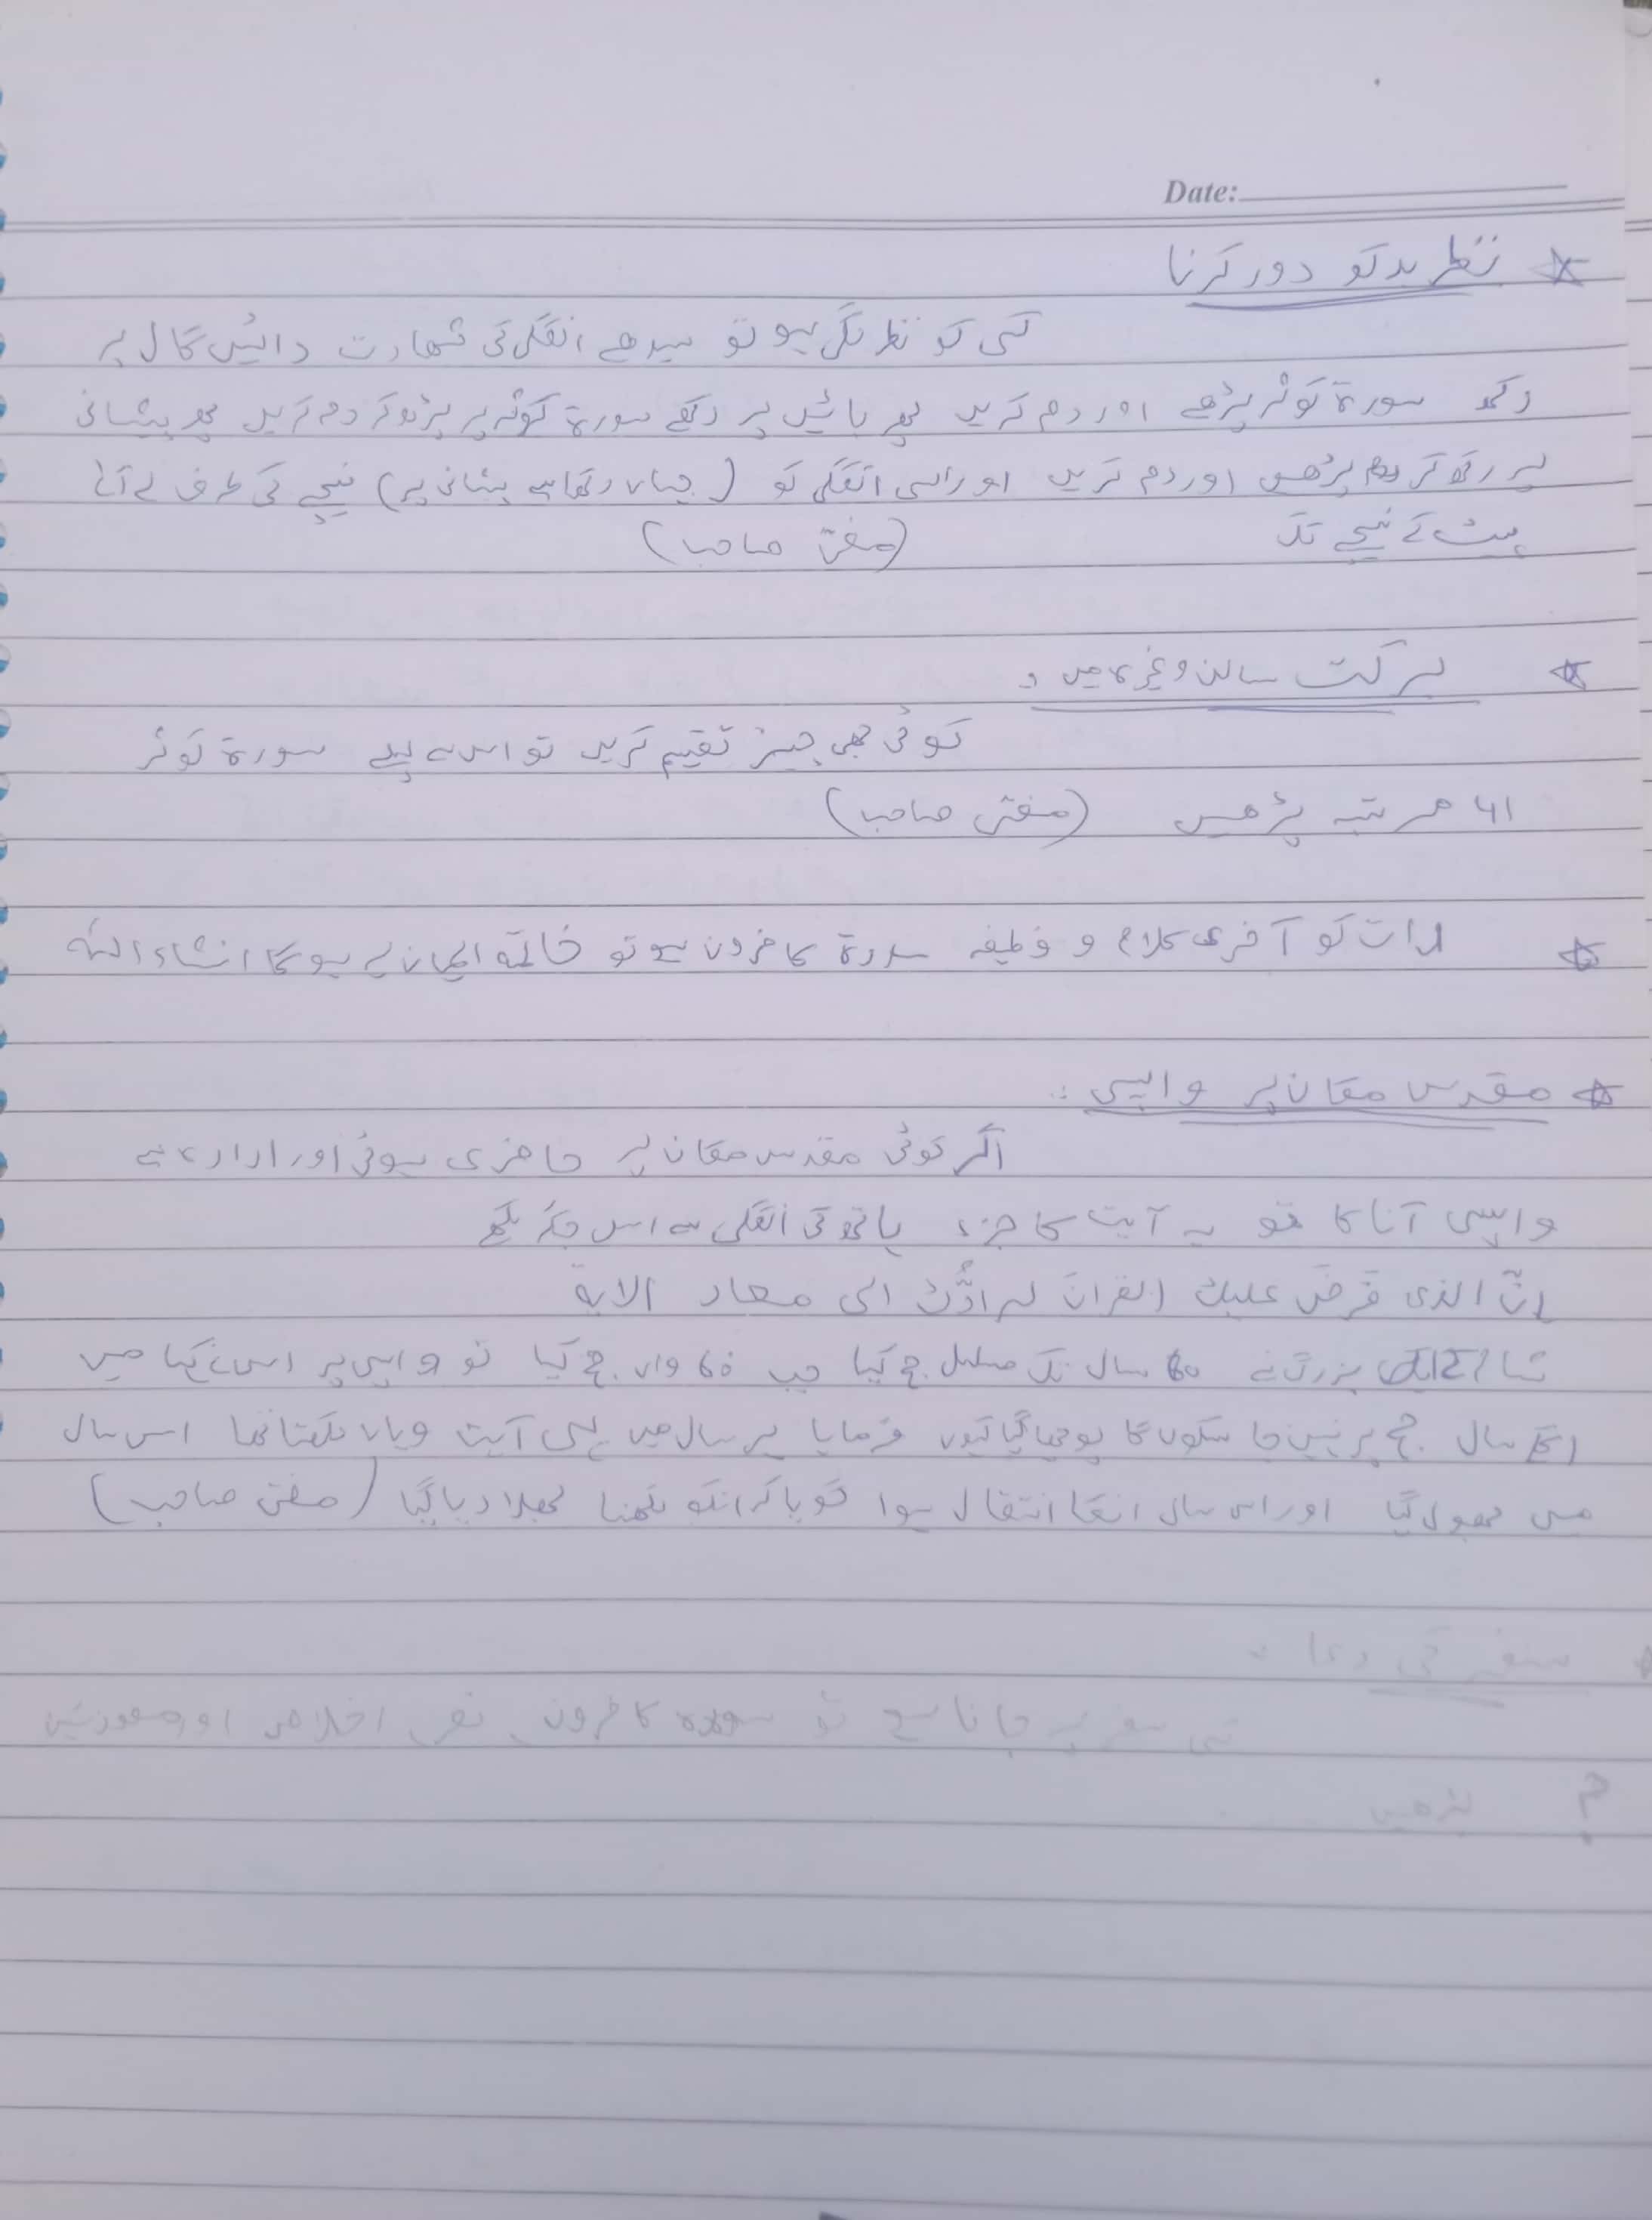 Date:
نظر بد کو دور کرنا
کسی کو نظر لگی ہو تو سیدھے انگلی کی شھادت دائیں گال پر
رکھ سورۃ کوثر پڑھے اور دم کریں پھر بائیں پر رکھے سورۃ کوثر پر پڑھ کر دم کریں پھر پیشانی
پر رکھ کر پڑھیں اور دم کریں اور اسی انگلی کو (جہاں رکھا ہے پیشانی پر) نیچے کی طرف لے آئے
پیٹ کے نیچے تک (مفتی صاحب)
برکت سالن وغیرہ میں
کوئی بھی چیز تقسیم کریں تو اس سے پہلے سورۃ کوثر
41 مرتبہ پڑھیں (مفتی صاحب)
رات کو آخری کلام و وظیفہ سورۃ کافرون ہے تو خاتمہ ایمان پر ہوگا انشاء اللہ
مقدس مقان پر واپسی :
اگر کوئی مقدس مقان پر حاضری ہوئی اور ارادہ ہے
واپسی آنا کا تو یہ آیت کا جزء ہاتھ کی انگلی سے اس جگہ لکھے
انّ الذی فرضَ علیك القرانَ لرادُّك الی معاد الایة
ایک بزرگ نے 60 سال تک مسلسل حج کیا جب 60 واں حج کیا تو واپس پر اس نے کہا میں
اگلے سال حج پر نہیں جا سکوں گا پوچھا گیا کیوں فرمایا ہر سال میں یہی آیت وہاں لکھتا تھا اس سال
میں بھول گیا اور اس سال انکا انتقال ہوا گویا کہ انکو لکھنا بھلا دیا گیا (مفتی صاحب)
سفر کی دعا :
سفر پر جانا ہے تو سورۃ کافرون نصر اخلاص اور معوذتین
پڑھیں